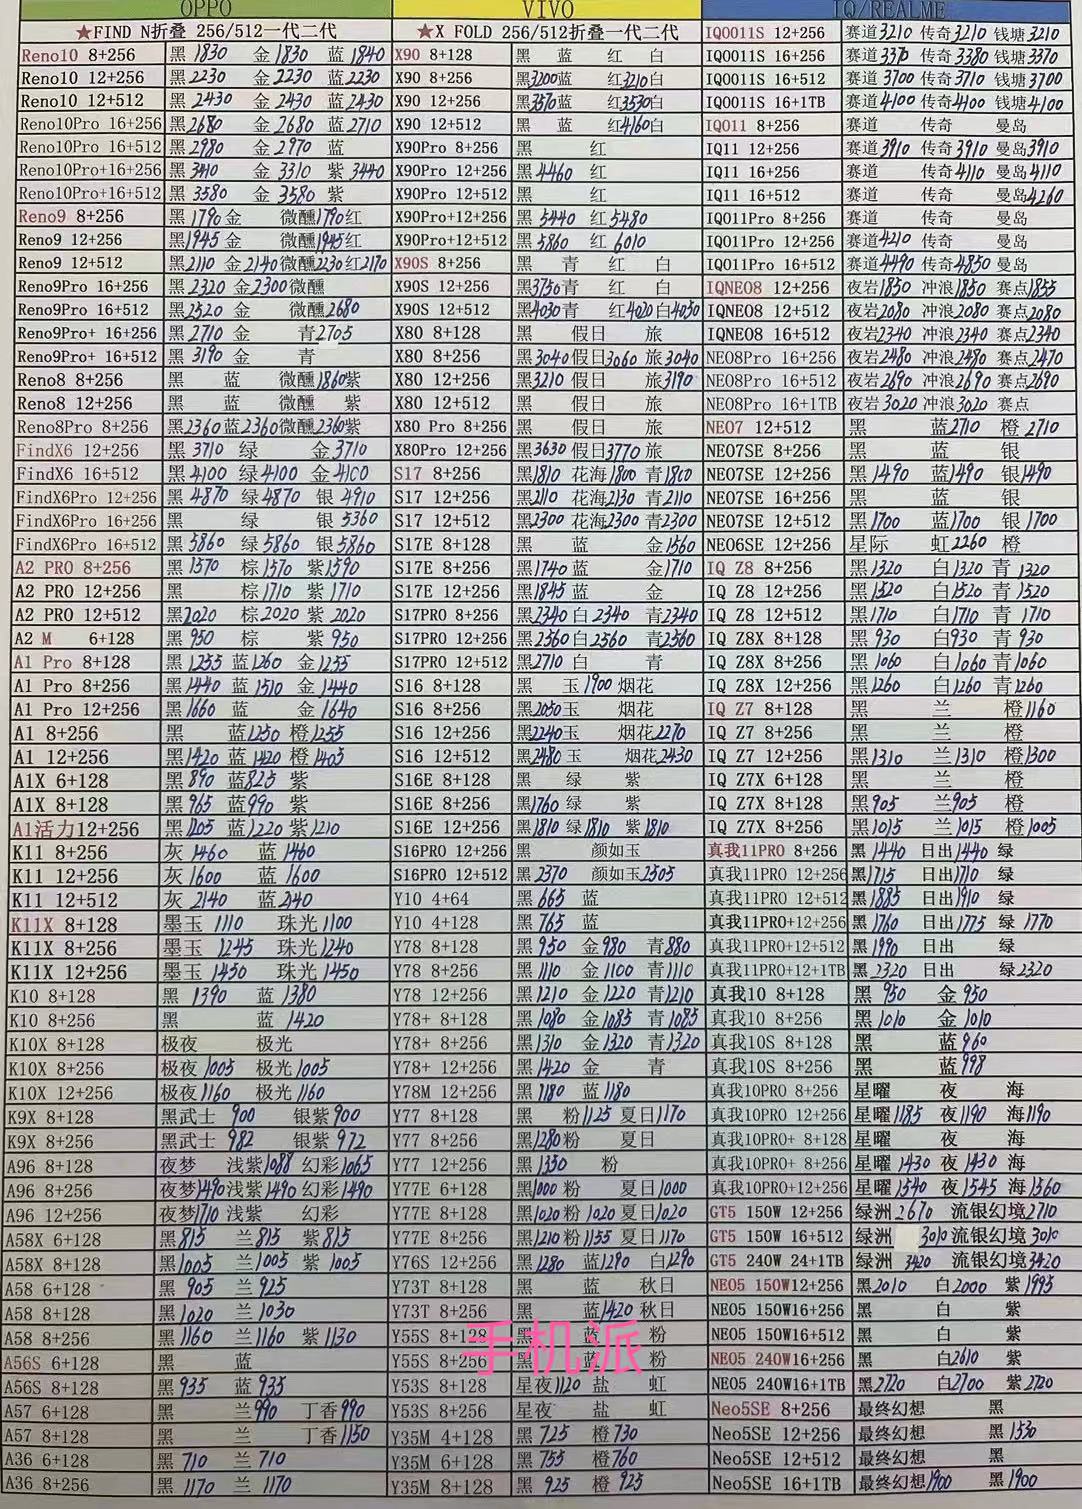 OPPO VIVO IQ/REALME
★FIND N折叠 256/512一代二代 ★X FOLD 256/512折叠一代二代 IQ0011S 12+256 赛道3210 传奇3210 钱塘3210
Reno10 8+256 黑 1830 金 1830 蓝 1840 X90 8+128 黑 蓝 红 白 IQ0011S 16+256 赛道3370 传奇3380 钱塘3370
Reno10 12+256 黑 2230 金 2230 蓝 2230 X90 8+256 黑3200蓝 红3210白 IQ0011S 16+512 赛道3700 传奇3710 钱塘3700
Reno10 12+512 黑 2430 金 2430 蓝 2430 X90 12+256 黑3570蓝 红3530白 IQ0011S 16+1TB 赛道4100 传奇4100 钱塘4100
Reno10Pro 16+256 黑2680 金 2680 蓝 2710 X90 12+512 黑 蓝 红4160白 IQ011 8+256 赛道 传奇 曼岛
Reno10Pro 16+512 黑2980 金 2970 蓝 X90Pro 8+256 黑 红 IQ11 12+256 赛道3910 传奇3910 曼岛3910
Reno10Pro+16+256 黑 3410 金 3310 紫 3440 X90Pro 12+256 黑4460 红 IQ11 16+256 赛道 传奇4110 曼岛4110
Reno10Pro+16+512 黑 3580 金 3580 紫 X90Pro 12+512 黑 红 IQ11 16+512 赛道 传奇 曼岛4260
Reno9 8+256 黑 1790金 微醺1790红 X90Pro+12+256 黑 5440 红 5480 IQ011Pro 8+256 赛道 传奇 曼岛
Reno9 12+256 黑1945 金 微醺1945红 X90Pro+12+512 黑 5860 红 6010 IQ011Pro 12+256 赛道4210 传奇 曼岛
Reno9 12+512 黑2110 金2140微醺2230红2170 X90S 8+256 黑 青 红 白 IQ011Pro 16+512 赛道4490 传奇4850 曼岛
Reno9Pro 16+256 黑 2320 金2300微醺 X90S 12+256 黑3750青 红 白 IQNEO8 12+256 夜岩1850 冲浪1850 赛点1855
Reno9Pro 16+512 黑2520 金 微醺2680 X90S 12+512 黑4030青 红4020白4050 IQNEO8 12+512 夜岩2080 冲浪2080 赛点2080
Reno9Pro+ 16+256 黑 2710 金 青2705 X80 8+128 黑 假日 旅 IQNEO8 16+512 夜岩2340 冲浪2340 赛点2340
Reno9Pro+ 16+512 黑 3190 金 青 X80 8+256 黑3040假日3060 旅3040 NEO8Pro 16+256 夜岩2480 冲浪2480 赛点2470
Reno8 8+256 黑 蓝 微醺1860紫 X80 12+256 黑3210 假日 旅3190 NEO8Pro 16+512 夜岩2690 冲浪2690 赛点2690
Reno8 12+256 黑 蓝 微醺 紫 X80 12+512 黑 假日 旅 NEO8Pro 16+1TB 夜岩3020 冲浪3020 赛点
Reno8Pro 8+256 黑2360蓝2360微醺2360紫 X80 Pro 8+256 黑 假日 旅 NEO7 12+512 黑 蓝2710 橙 2710
FindX6 12+256 黑 3710 绿 金 3710 X80Pro 12+256 黑3630 假日3770 旅 NEO7SE 8+256 黑 蓝 银
FindX6 16+512 黑 4100 绿4100 金 4100 S17 8+256 黑1810 花海1800 青1800 NEO7SE 12+256 黑 1490 蓝1490 银1490
FindX6Pro 12+256 黑 4870 绿 4870 银 4910 S17 12+256 黑2110 花海2130 青2110 NEO7SE 16+256 黑 蓝 银
FindX6Pro 16+256 黑 绿 银 5360 S17 12+512 黑2300 花海2300 青2300 NEO7SE 12+512 黑 1700 蓝1700 银 1700
FindX6Pro 16+512 黑 5860 绿 5860 银5860 S17E 8+128 黑 蓝 金1560 NEO6SE 12+256 星际 虹2260 橙
A2 PRO 8+256 黑 1570 棕1570 紫1590 S17E 8+256 黑1740蓝 金1710 IQ Z8 8+256 黑1320 白1320 青 1320
A2 PRO 12+256 黑 棕1710 紫 1710 S17E 12+256 黑1845蓝 金 IQ Z8 12+256 黑1520 白1520 青 1520
A2 PRO 12+512 黑2020 棕2020 紫 2020 S17PRO 8+256 黑2340白 2340 青2340 IQ Z8 12+512 黑1710 白1710 青 1710
A2 M 6+128 黑 950 棕 紫 950 S17PRO 12+256 黑2560白2560 青2560 IQ Z8X 8+128 黑 930 白930 青 930
A1 Pro 8+128 黑 1255 蓝1260 金1255 S17PRO 12+512 黑2710 白 青 IQ Z8X 8+256 黑1060 白1060 青1060
A1 Pro 8+256 黑1440 蓝 1510 金 1440 S16 8+128 黑 玉1900 烟花 IQ Z8X 12+256 黑1260 白1260 青1260
A1 Pro 12+256 黑1660 蓝 金 1640 S16 8+256 黑2050玉 烟花 IQ Z7 8+128 黑 兰 橙1160
A1 8+256 黑 蓝1250 橙1255 S16 12+256 黑2240玉 烟花2270 IQ Z7 8+256 黑 兰 橙
A1 12+256 黑1420 蓝1420 橙1405 S16 12+512 黑2480玉 烟花2430 IQ Z7 12+256 黑1310 兰1310 橙1300
A1X 6+128 黑 890 蓝825 紫 S16E 8+128 黑 绿 紫 IQ Z7X 6+128 黑 兰 橙
A1X 8+128 黑 965 蓝990 紫 S16E 8+256 黑1760 绿 紫 IQ Z7X 8+128 黑905 兰905 橙
A1活力12+256 黑1205 蓝1220 紫1210 S16E 12+256 黑1810 绿1810 紫1810 IQ Z7X 8+256 黑1015 兰1015 橙1005
K11 8+256 灰 1460 蓝 1460 S16PRO 12+256 黑 颜如玉 真我11PRO 8+256 黑1440 日出1440 绿
K11 12+256 灰 1600 蓝 1600 S16PRO 12+512 黑 2370 颜如玉2505 真我11PRO 12+256 黑1715 日出1710 绿
K11 12+512 灰 2140 蓝 2140 Y10 4+64 黑 665 蓝 真我11PRO 12+512 黑1885 日出1910 绿
K11X 8+128 墨玉 1110 珠光1100 Y10 4+128 黑 765 蓝 真我11PRO+12+256 黑1760 日出1775 绿 1770
K11X 8+256 墨玉 1245 珠光1240 Y78 8+128 黑 950 金980 青880 真我11PRO+12+512 黑1990 日出 绿
K11X 12+256 墨玉 1450 珠光1450 Y78 8+256 黑 1110 金1100 青1110 真我11PRO+12+1TB 黑 2320 日出 绿2320
K10 8+128 黑 1390 蓝 1380 Y78 12+256 黑1210 金1220 青1210 真我10 8+128 黑 950 金 950
K10 8+256 黑 蓝 1420 Y78+ 8+128 黑1080 金1085 青1085 真我10 8+256 黑 1010 金 1010
K10X 8+128 极夜 极光 Y78+ 8+256 黑1310 金1320 青1320 真我10S 8+128 黑 蓝 960
K10X 8+256 极夜 1005 极光1005 Y78+ 12+256 黑1420 金 青 真我10S 8+256 黑 蓝 998
K10X 12+256 极夜1160 极光1160 Y78M 12+256 黑 1180 蓝1180 真我10PRO 8+256 星曜 夜 海
K9X 8+128 黑武士 900 银紫900 Y77 8+128 黑 粉1125 夏日1170 真我10PRO 12+256 星曜1185 夜1190 海1190
K9X 8+256 黑武士 982 银紫 972 Y77 8+256 黑1280粉 夏日 真我10PRO+ 8+128 星曜 夜 海
A96 8+128 夜梦 浅紫1088 幻彩1065 Y77 12+256 黑 1350 粉 真我10PRO+ 8+256 星曜1430 夜1430 海
A96 8+256 夜梦1490浅紫1490 幻彩1490 Y77E 6+128 黑1000 粉 夏日1000 真我10PRO+12+256 星曜1540 夜1545 海1560
A96 12+256 夜梦1710 浅紫 幻彩 Y77E 8+128 黑1020粉 1020 夏日1020 GT5 150W 12+256 绿洲2670 流银幻境2710
A58X 6+128 黑815 兰815 紫815 Y77E 8+256 黑1210粉1155 夏日1170 GT5 150W 16+512 绿洲 3010 流银幻境3010
A58X 8+128 黑1005 兰1005 紫 1005 Y76S 12+256 黑 1280 蓝1290 白1290 GT5 240W 24+1TB 绿洲 3420 流银幻境3420
A58 6+128 黑 905 兰 925 Y73T 8+128 黑 蓝 秋日 NEO5 150W12+256 黑2010 白2000 紫1995
A58 8+128 黑1020 兰 1030 Y73T 8+256 黑 蓝1420 秋日 NEO5 150W16+256 黑 白 紫
A58 8+256 黑1160 兰1160 紫 1130 Y55S 8+128 黑 蓝 粉 NEO5 150W16+512 黑 白 紫
手机派
A56S 6+128 黑 蓝 Y55S 8+256 黑 蓝 粉 NEO5 240W16+256 黑 白2610 紫
A56S 8+128 黑 935 蓝 935 Y53S 8+128 星夜1120 盐 虹 NEO5 240W16+1TB 黑2720 白2700 紫2720
A57 6+128 黑 兰990 丁香990 Y53S 8+256 星夜 盐 虹 Neo5SE 8+256 最终幻想 黑
A57 8+128 黑 兰 丁香1150 Y35M 4+128 黑 725 橙730 Neo5SE 12+256 最终幻想 黑 1530
A36 6+128 黑 710 兰 710 Y35M 6+128 黑 755 橙760 Neo5SE 12+512 最终幻想 黑
A36 8+256 黑 1170 兰 1170 Y35M 8+128 黑 925 橙 925 Neo5SE 16+1TB 最终幻想1900 黑 1900